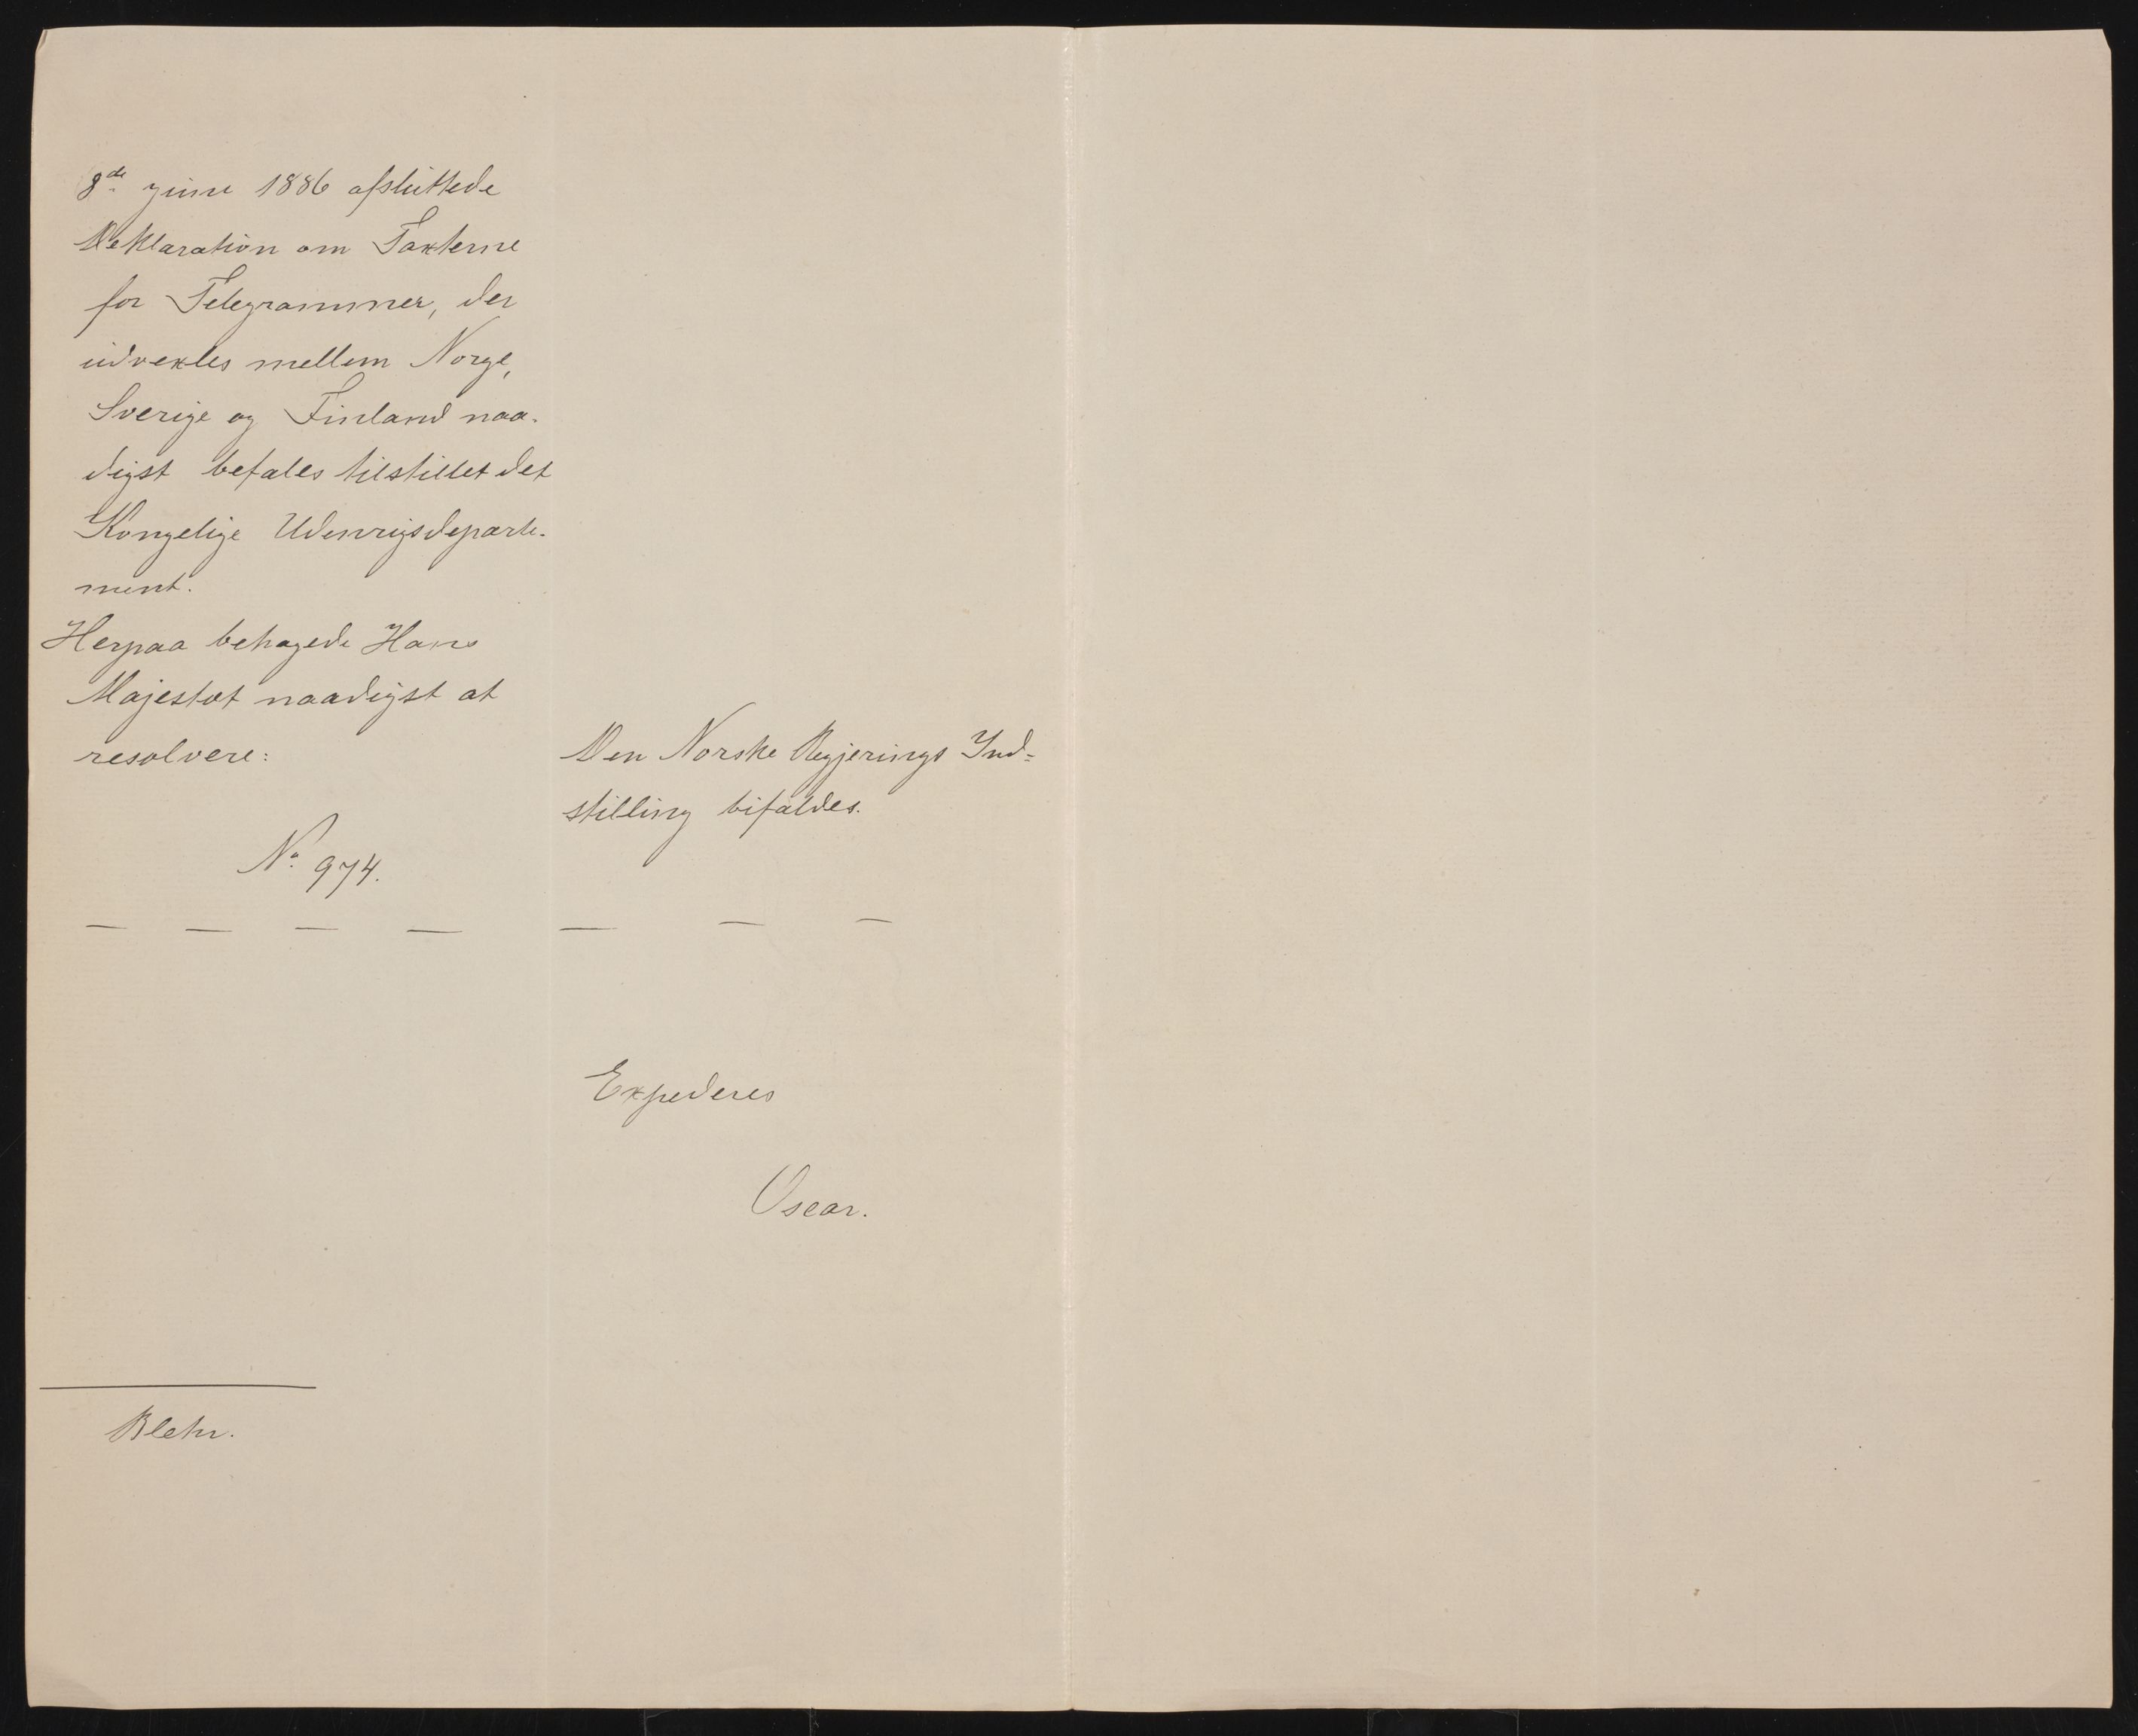 8de juni 1886 afsluttede
Deklaration om Taxterne
for Telegrammer, der
udvexles mellem Norge,
Sverige og Finland naa-
digst befales tilstillet det
Kongelige Udenrigsdeparte-
ment.
Herpaa behagede Hans
Majestæt naadigst at
resolvere:
Den Norske Regjerings Ind=
stilling bifaldes.
No 974.
— — — — — — —
Expederes
Oscar.
Blehr.